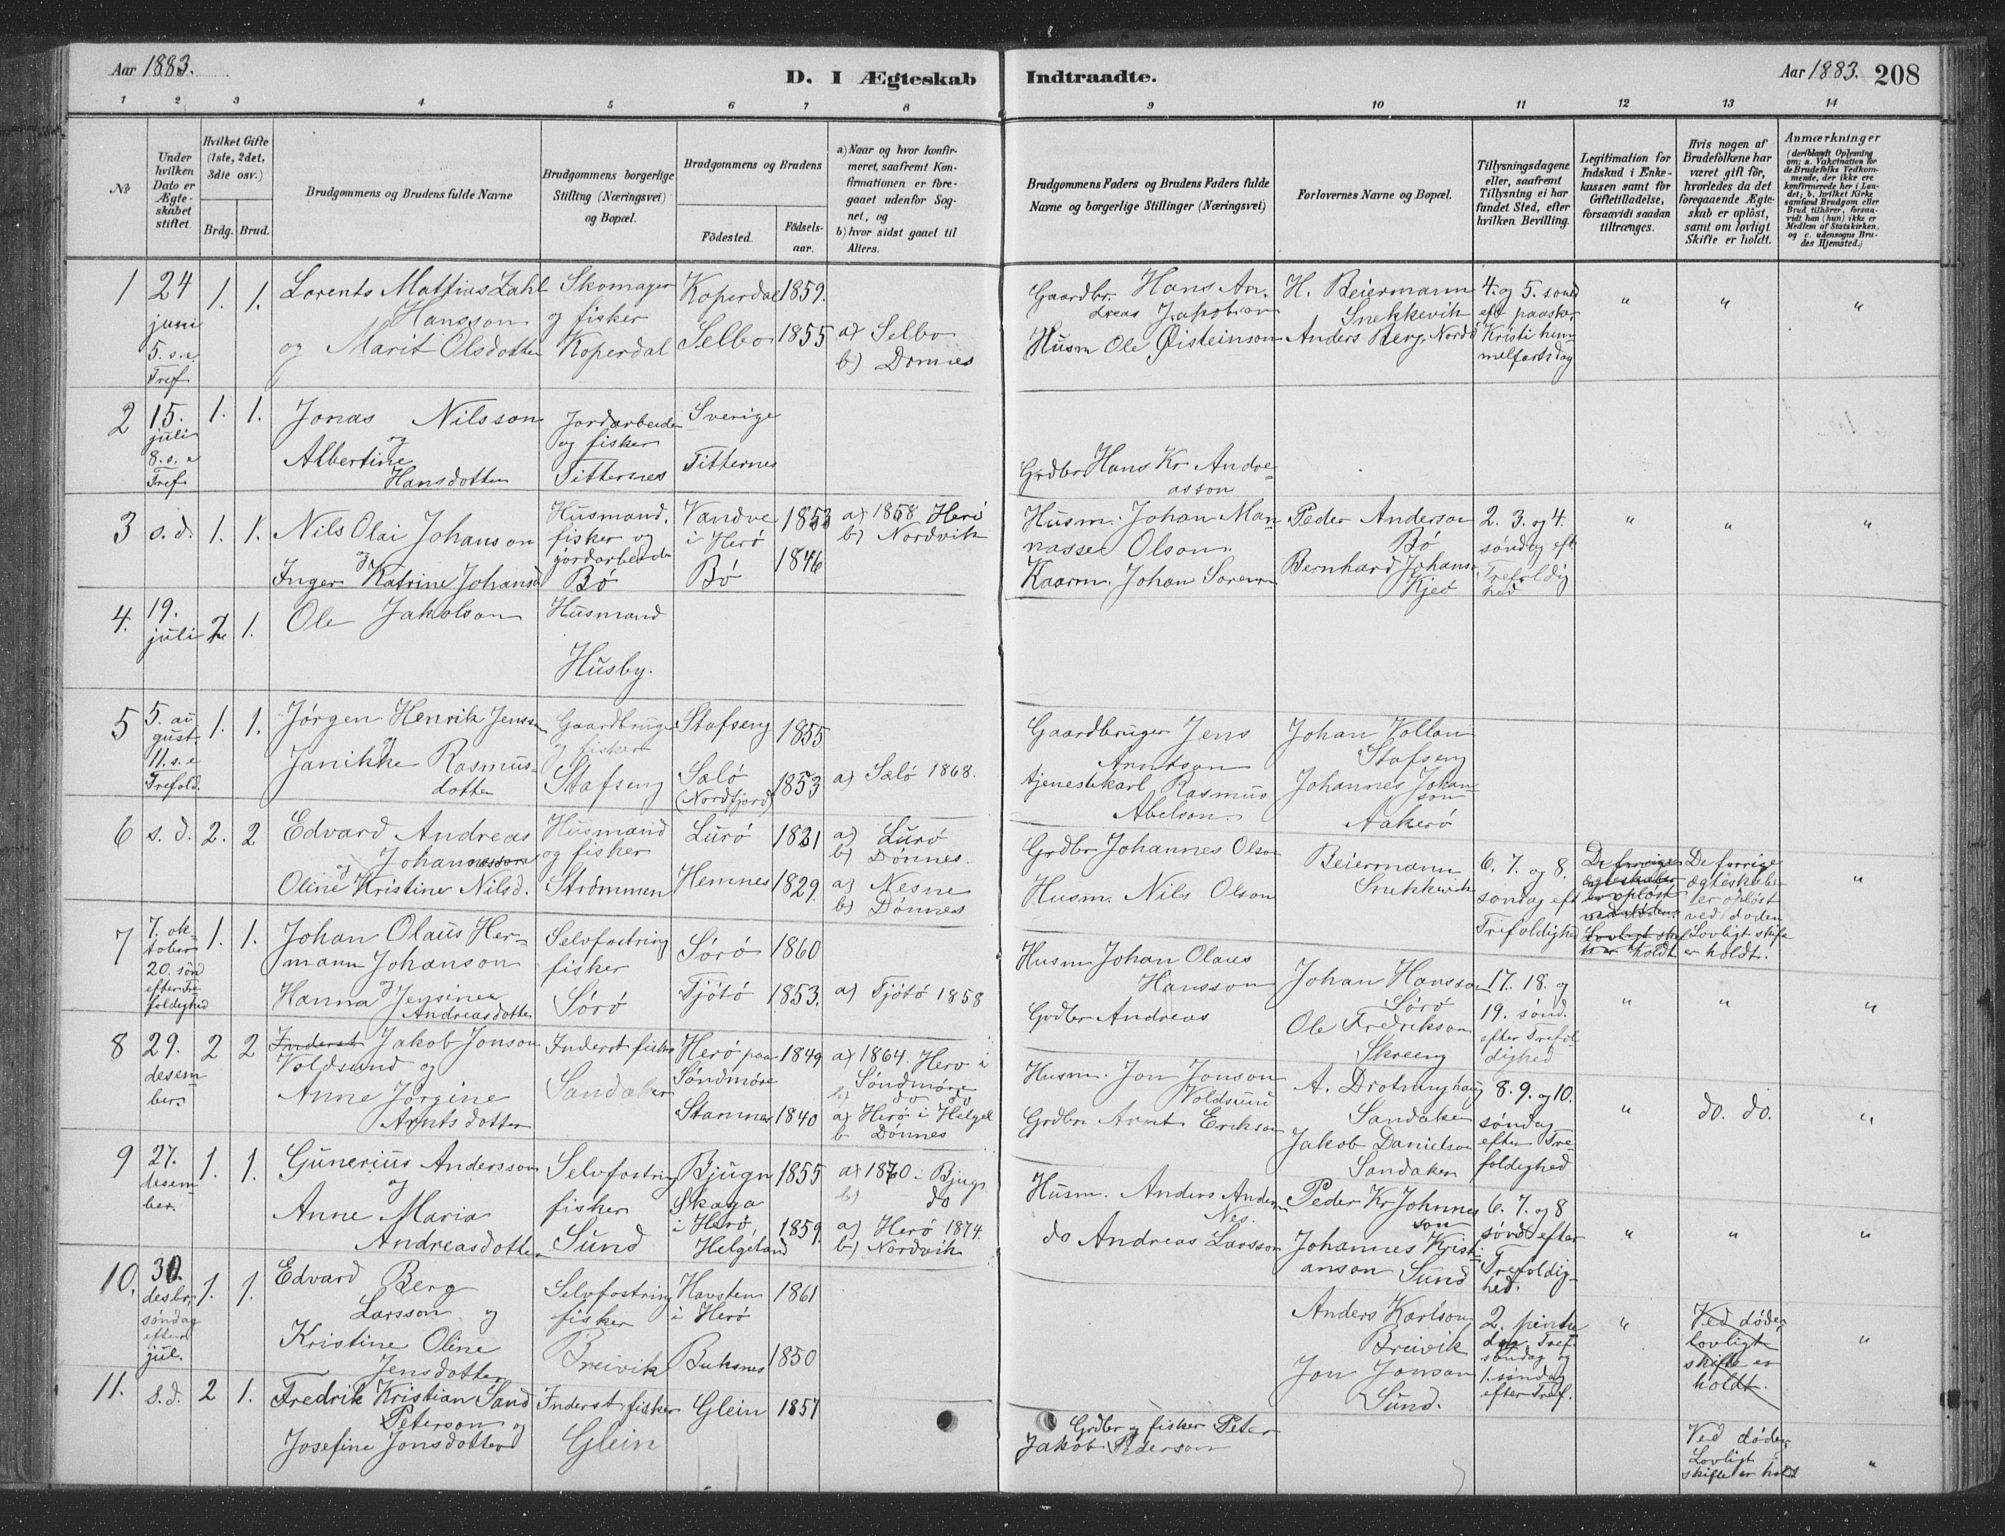 Aar 1883.
D. I Ægteskab
Indtraadte.
Aar 1883. 208
1 2 3 4 5 6 7 8 9 10 11 12 13 14
Nr
Under hvilken Dato er Ægteskabet stiftet.
Hvilket Gifte (1ste, 2det, 3die osv.)
Brdg. Brud.
Brudgommens og Brudens fulde Navne
Brudgommens borgerlige Stilling (Næringsvei) og Bopæl.
Brudgommens og Brudens
Fødested.
Fødselsaar.
a) Naar og hvor konfirmeret, saafremt Konfirmationen er foregaaet udenfor Sognet, og
b) hvor sidst gaaet til Alters.
Brudgommens Faders og Brudens Faders fulde Navne og borgerlige Stillinger (Næringsvei)
Forlovernes Navne og Bopæl.
Tillysningsdagene eller, saafremt Tillysning ei har fundet Sted, efter hvilken Bevilling.
Legitimation for Indskud i Enkekassen samt for Giftetilladelse, forsaavidt saadan tiltrænges.
Hvis nogen af Brudefolkene har været gift før, hvorledes da det foregaaende Ægteskab er opløst, samt om lovligt Skifte er holdt.
Anmærkninger
(deriblandt Oplysning om: a. Vakcination for de Brudefolks Vedkommende, der ikke ere konfirmerede her i Landet; b. hvilket Kirkesamfund Brudgom eller Brud tilhører, forsaavidt han (hun) ikke er Medlem af Statskirken, og c. udensogns Brudes Hjemsted.)
1 24 juni 5. s. e Tref. 1. 1.
Lorents Mattius Zahl Hansson
og Marit Olsdotter
Skomager og fisker Koperdal
Koperdal 1859.
Selbo 1855
a) Selbo
b) Dønnes
Gaardbr. Hans Andreas Jakobson
Husm Ole Øisteinson
H. Beiermann Snekkevik
Anders Berg, Nord
4. og 5. sønd eft paaske, Kristi himmelfartsdag
" " "
2 15. juli 8. s. e Tref. 1. 1.
Jonas Nilsson
og
Albertine Hansdotter
Jordarbeider og fisker
Titternes
Sverige
Titternes
Grdbr Hans Kr Andreasson
3 s. d. 1. 1.
Nils Olai Johanson
og
Inger Katrine Johansd
Husmand, fisker og jordarbeider
Bø
Vandve i Herø 1853
Bø 1846
a) 1868 Herø
b) Nordvik
Husm. Johan Manasse Olson.
Kaarm. Johan Sorenson
Peder Anderson Bø
Bernhard Johanso Kjeø
2. 3. og 4. søndag eft Trefoldighed
" " "
4. 19. juli 2 1.
Ole Jakobson
Husmand
Husby.
5 5. august. 11. s. e Trefold. 1. 1.
Jørgen Henrik Jensson
og
Janikke Rasmusdotter
Gaardbruger og fisker
Stafseng
Stafseng 1855
Sælø (Nordfjord) 1853
a) Sælø 1868.
Gaardbruger Jens Arntson
tjenestekarl Rasmus Abelson.
Johan Vollan Stafseng
Johannes Johanson Aakerø
6 s. d. 2. 2
Edvard Andreas Johannesson
og
Oline Kristine Nilsd.
Husmand og fisker
Strømmen
Lurø 1821
Hemnes 1829.
a) Lurø
b) Dønnes.
a) Nesne
b) Dønnes
Grdbr Johannes Olson
Husm. Nils Olson
Beiermann Snekkevik
6. 7. og 8. søndag eft Trefoldighed
De forrige ægteskaber er opløst ved døden Lovligt skifte er holdt
De forrige ægteskaber er opløst ved døden Lovligt skifte er holdt.
"
7 7. oktober 20. sønd efter Trefoldighed 1. 1.
Johan Olaus Hermann Johanson
og
Hanna Jensine Andreasdotter
Selvfostring fisker
Sørø
Sørø 1860
Tjøtø 1853.
a) Tjøtø 1858
Husm Johan Olaus Hansson
Grdbr Andreas
Johan Hansson Sørø
Ole Fredrikson Skreeng
17. 18. og 19. sønd. efter Trefoldighed
" " "
8 29. desember. 2 2
Inderst Jakob Jonson Voldsund og
Anne Jørgine Arntsdotter
Inderst fisker
Sandaker
Herø paa Søndmøre 1849
Stamnes 1840
a) 1864. Herø i Søndmøre
b) do do
a) Herø i Helgel
b Dønnes
Husm. Jon Jonson Voldsund
Grdbr Arnt Erikson
A. Drotninghaug Sandaker
Jakob Danielson Sandaker
8. 9. og 10. søndag efter Trefoldighed
" do. do. "
9 27. desember. 1. 1.
Gunerius Andersson
og
Anne Maria Andreasdotter
Selvfostring fisker
Sund
Bjugn 1855
Skaga i Herø, Helgeland 1859.
a) 1870. Bjugn
b) do
a) Herø 1874.
b) Nordvik
Husm. Anders Anderson Nes.
do Andreas Larsson
Peder Kr Johnneson
Johannes Kristianson Sund
6. 7. og 8 sønd efter Trefoldighed.
" " "
10. 30. desbr. søndag efter jul. 1. 1.
Edvard Berg Larsson og
Kristine Oline Jensdotter
Selvfostring fisker
Breivik
Havsten i Herø 1861
Buksnes 1850
Anders Karlson Breivik
Jon Jonson Sund.
2. søndag og 1. søndag efter Tref.
"
Ved døden lovligt skifte er holdt.
"
11. s. d. 2 1.
Fredrik Kristian Sand Peterson og
Josefine Jonsdotter
Inderst, fisker
Glein
Glein 1857
Grdbr og fisker Peter Jakob Pederson
Ved døden, Lovligt skifte er holdt
"